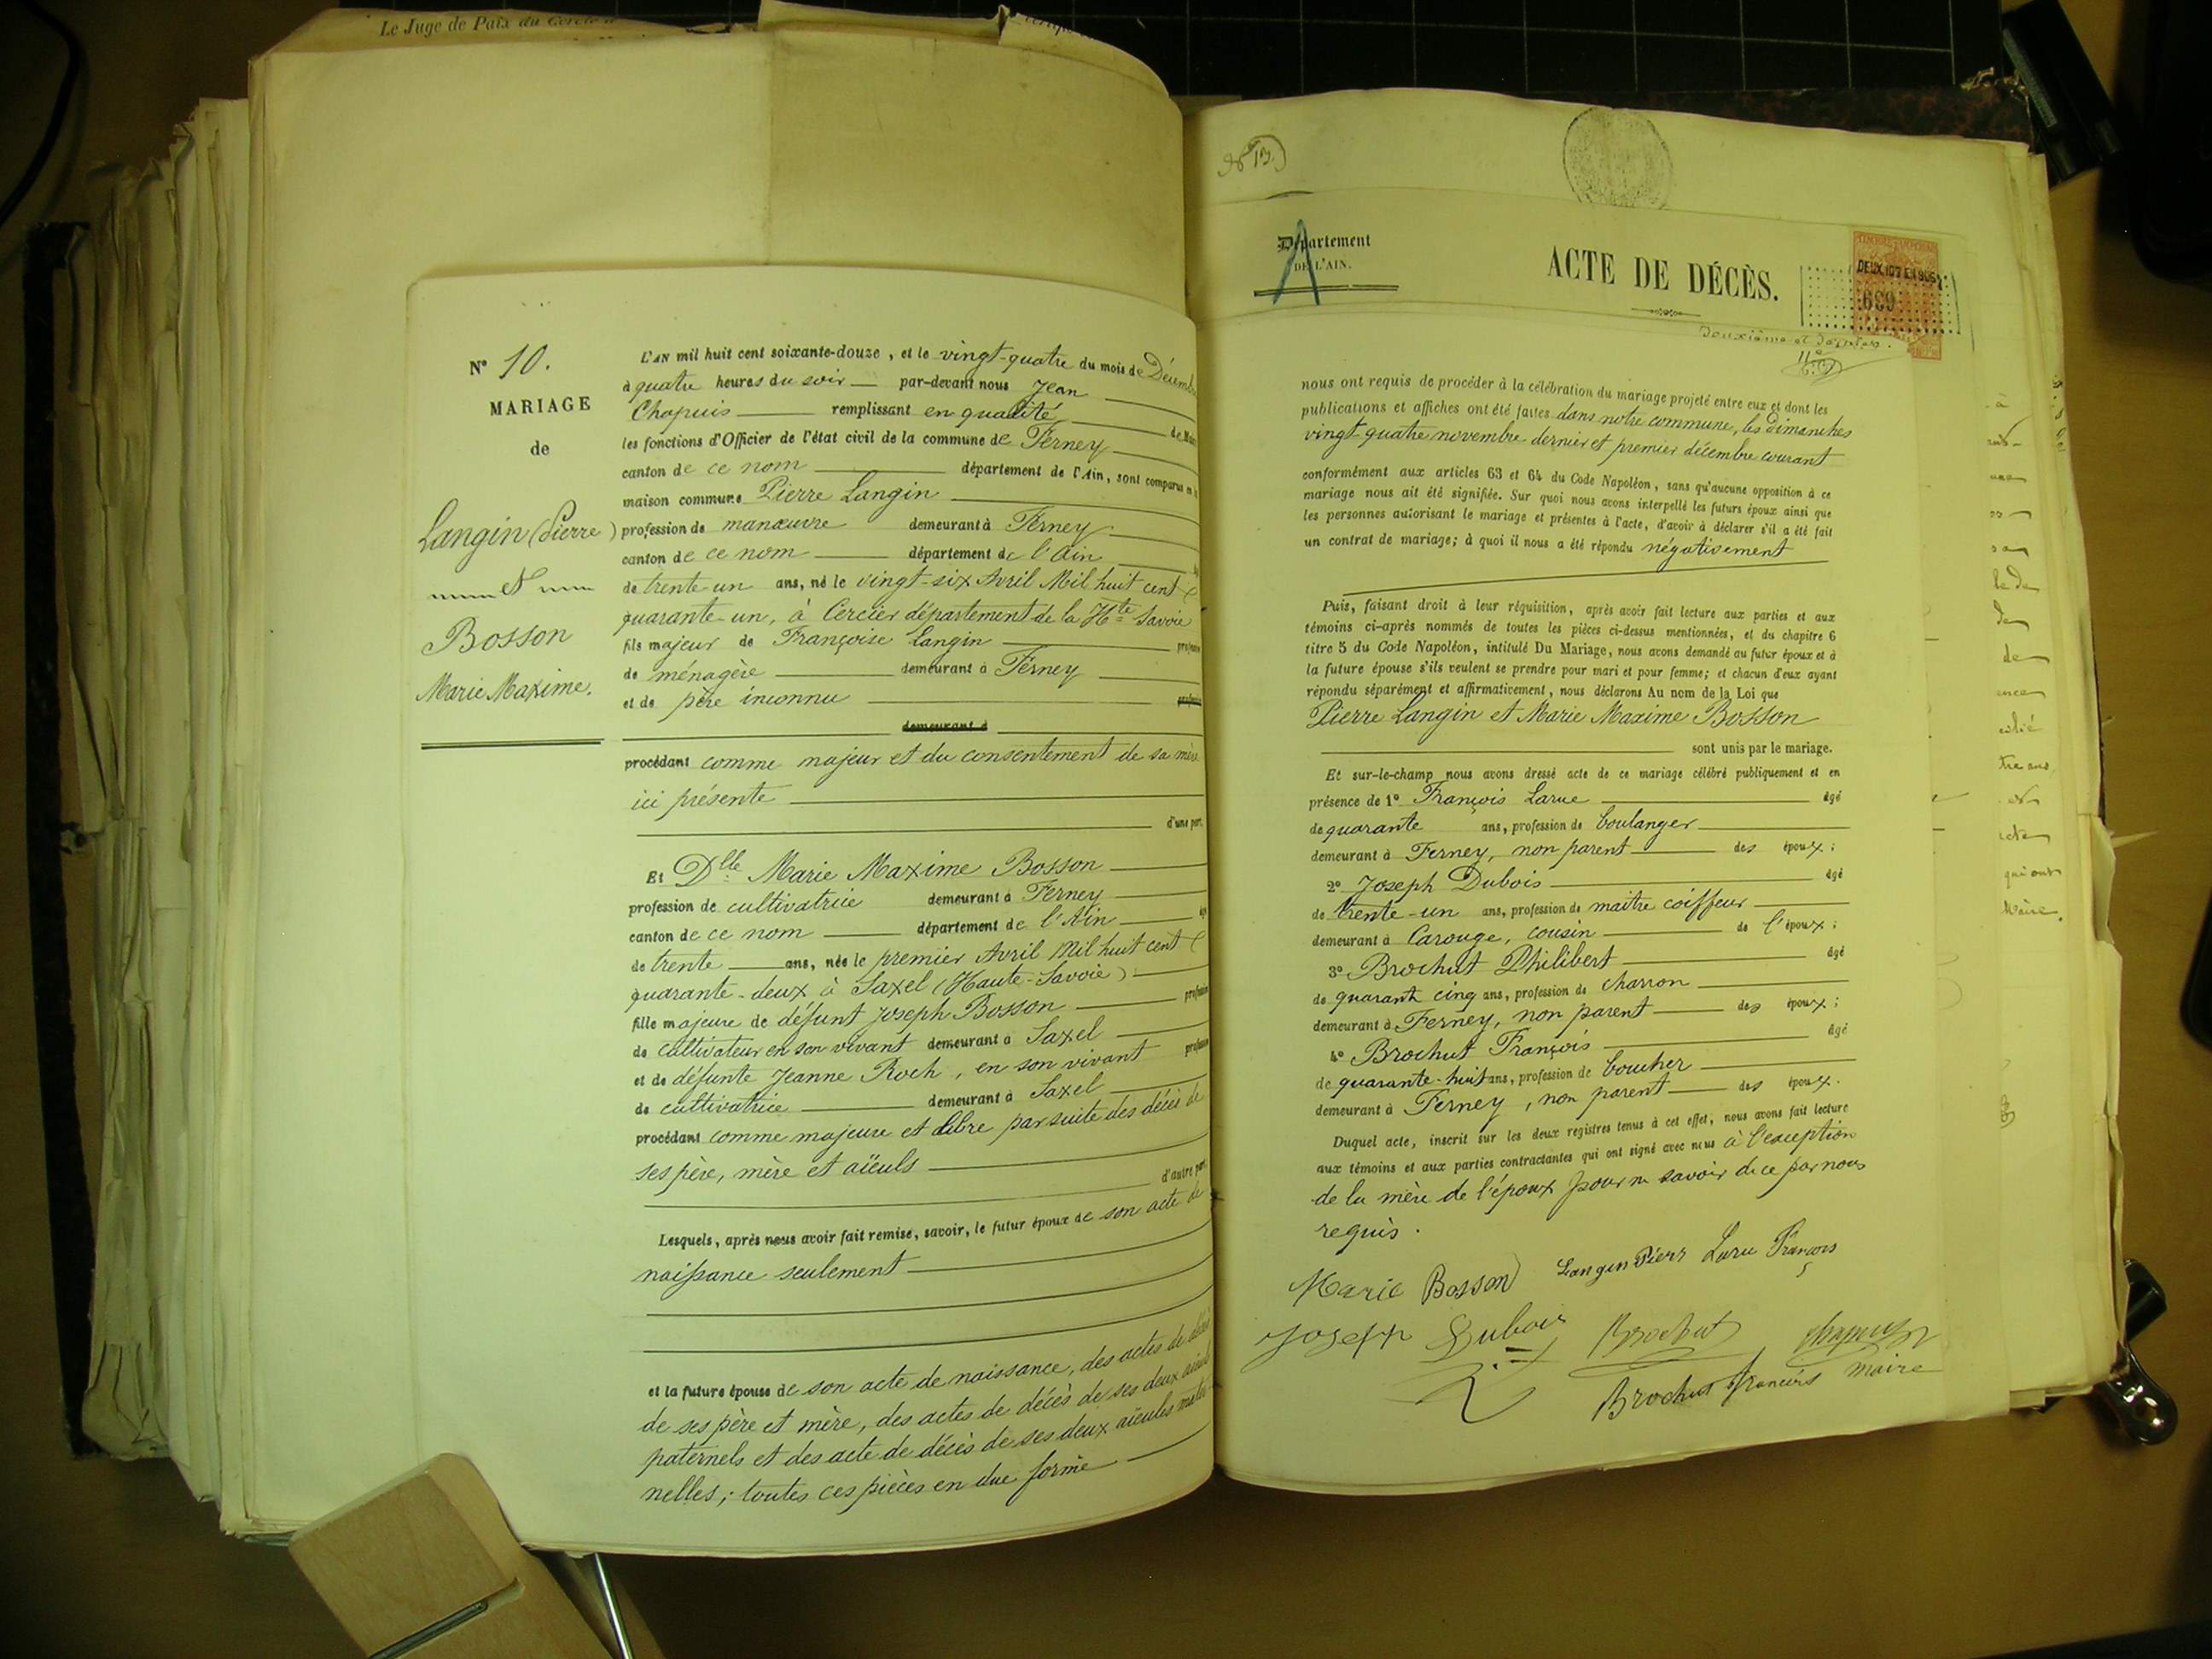 Le Juge de Paix du Cercle
N° 10.
MARIAGE
de
Langin (Pierre)
et
Bosson
Marie Maxime.
L'AN mil huit cent soixante-douze, et le vingt-quatre du mois de Décembre
à quatre heures du soir par-devant nous Jean
Chapuis remplissant en qualité de Maire
les fonctions d'Officier de l'état civil de la commune de Ferney
canton de ce nom département de l'Ain, sont comparus en la
maison commune Pierre Langin
profession de manœuvre demeurant à Ferney
canton de ce nom département de l'Ain
de trente-un ans, né le vingt-six Avril Mil huit cent
quarante-un, à Cercier département de la Hte Savoie
fils majeur de Françoise Langin profession
de ménagère demeurant à Ferney
et de père inconnu profession
demeurant à
procédant comme majeur et du consentement de sa mère
ici présente
d'une part.
Et Dlle Marie Maxime Bosson
profession de cultivatrice demeurant à Ferney
canton de ce nom département de l'Ain
de trente ans, née le premier Avril Mil huit cent
quarante-deux à Saxel (Haute-Savoie)
fille majeure de défunt Joseph Bosson profession
de cultivateur en son vivant demeurant à Saxel
et de défunte Jeanne Roch, en son vivant profession
de cultivatrice demeurant à Saxel
procédant comme majeure et libre par suite des décès de
ses père, mère et aïeuls
d'autre part.
Lesquels, après nous avoir fait remise, savoir, le futur époux de son acte de
naissance seulement
et la future épouse de son acte de naissance, des actes de décès
de ses père et mère, des actes de décès de ses deux aïeuls
paternels et des acte de décès de ses deux aïeules mater
nelles; toutes ces pièces en due forme
Département
DE L'AIN.
ACTE DE DÉCÈS.
639
Deuxième et dernier.
nous ont requis de procéder à la célébration du mariage projeté entre eux et dont les
publications et affiches ont été faites dans notre commune, les dimanches
vingt-quatre novembre dernier et premier décembre courant
conformément aux articles 63 et 64 du Code Napoléon, sans qu'aucune opposition à ce
mariage nous ait été signifiée. Sur quoi nous avons interpellé les futurs époux ainsi que
les personnes autorisant le mariage et présentes à l'acte, d'avoir à déclarer s'il a été fait
un contrat de mariage; à quoi il nous a été répondu négativement
Puis, faisant droit à leur réquisition, après avoir fait lecture aux parties et aux
témoins ci-après nommés de toutes les pièces ci-dessus mentionnées, et du chapitre 6
titre 5 du Code Napoléon, intitulé Du Mariage, nous avons demandé au futur époux et à
la future épouse s'ils veulent se prendre pour mari et pour femme; et chacun d'eux ayant
répondu séparément et affirmativement, nous déclarons Au nom de la Loi que
Pierre Langin et Marie Maxime Bosson
sont unis par le mariage.
Et sur-le-champ nous avons dressé acte de ce mariage célébré publiquement et en
présence de 1° François Larue âgé
de quarante ans, profession de boulanger
demeurant à Ferney, non parent des époux;
2° Joseph Dubois âgé
de trente-un ans, profession de maitre coiffeur
demeurant à Carouge, cousin de l'époux;
3° Brochut Philibert âgé
de quarant cinq ans, profession de charron
demeurant à Ferney, non parent des époux;
4° Brochut François âgé
de quarante-huit ans, profession de boucher
demeurant à Ferney, non parent des époux.
Duquel acte, inscrit sur les deux registres tenus à cet effet, nous avons fait lecture
aux témoins et aux parties contractantes qui ont signé avec nous à l'exception
de la mère de l'époux pour ne savoir de ce par nous
requis.
Marie Bosson Langin Pierr Laru François
Joseph Dubois Brochut Chapuis
Brochut François maire